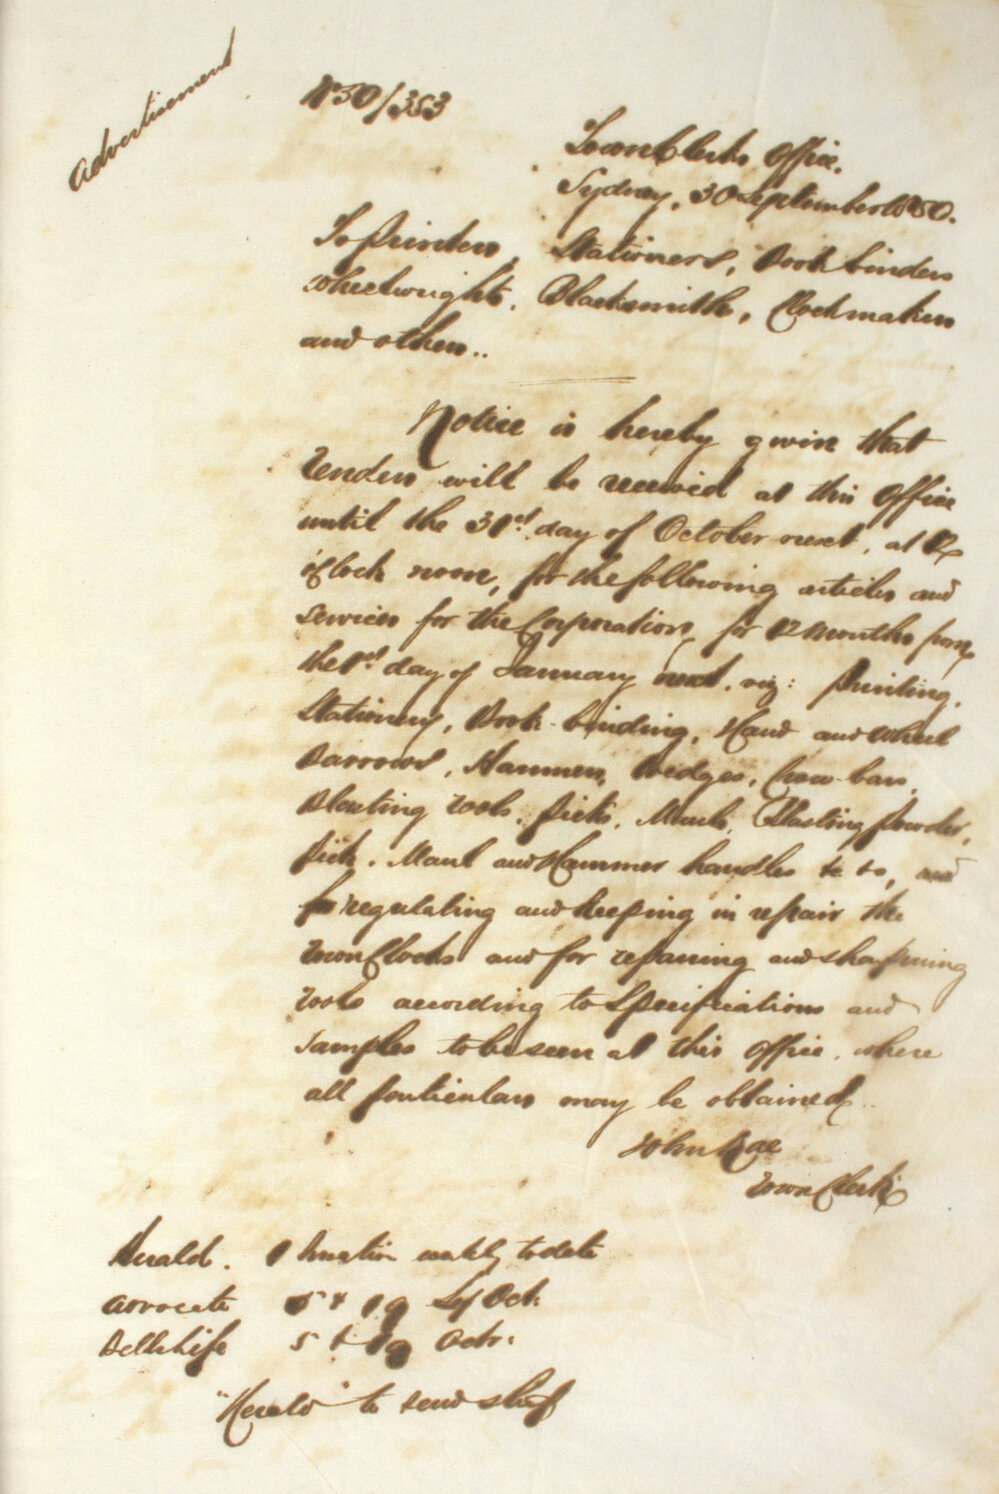 Advertisement
No 50/353
Town Clerk's Office.
Sydney, 30 September 1850.
To Printers, Stationers, Bookbinders
Wheelwrights, Blacksmiths, Clockmakers
and others..
Notice is hereby given that
Tenders will be received at this Office
until the 31st day of October next, at 12
o'Clock noon, for the following articles and
services for the Corporation, for 12 months from
the 1st day of January next. viz: Printing,
Stationery, Book-binding, Hand and Wheel
Barrows, Hammers, Wedges, Crow-bars,
Blasting Tools, Picks, Mauls, Blasting Powder,
Pick, Maul and Hammer handles &c &c, and
for regulating and keeping in repair the
Town Clocks and for repairing and sharpening
Tools according to Specifications and
Samples to be seen at this Office, where
all particulars may be obtained..
John Rae
Town Clerk
Herald. 1 insertion weekly to date
Advocate 5 & 19 Oct.
Bells Life 5 & 19 Octr:
"Herald" to send slip